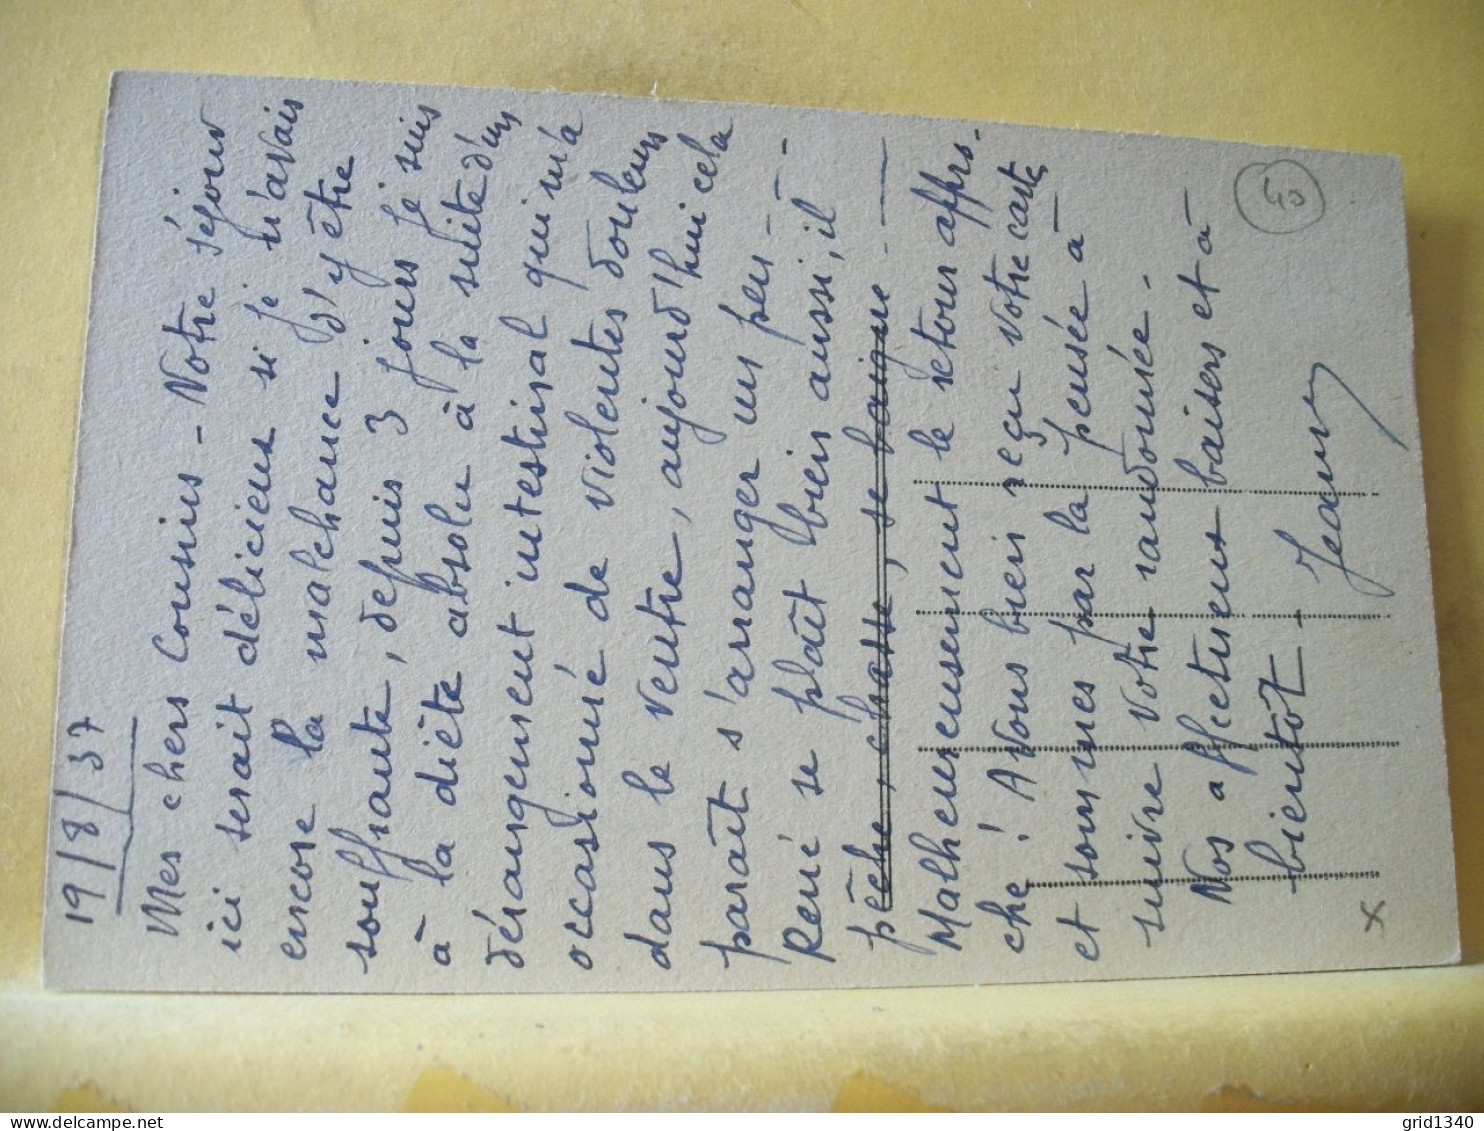 19/8/37
Mes chers Cousins - Notre séjour
ici serait délicieux si je n'avais
encore la malchance d'y être
souffrante, depuis 3 jours je suis
à la diète absolu à la suite d'un
dérangement intestinal qui m'a
occasionné de violentes douleurs
dans le ventre, aujourd'hui cela
paraît s'arranger un peu -
René se plaît bien aussi, il -
pêche, chasse, se baigne -
Malheureusement le retour appro-
che! Avons bien reçu votre carte
et sommes par la pensée à
suivre votre randonnée -
Nos affectueux baisers et à
bientôt -
Jeanne
40
x
grid1340